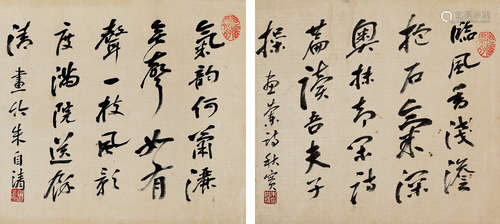 臨風香淺澹
抱石氣深
奧抹却閑詩
篇讀吾夫子
操 画蘭詩秋實
氣韵何蕭灑
無聲如有
聲一枝風影
度滿院送餘
清 畫竹朱自清